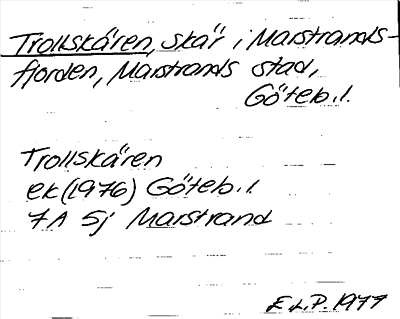 Trollskären, skär i Marstrands-
fjorden, Marstrands stad,
Göteb. l.
Trollskären
ek (1976) Göteb. l.
7A 5j Marstrand
E L.P. 1977